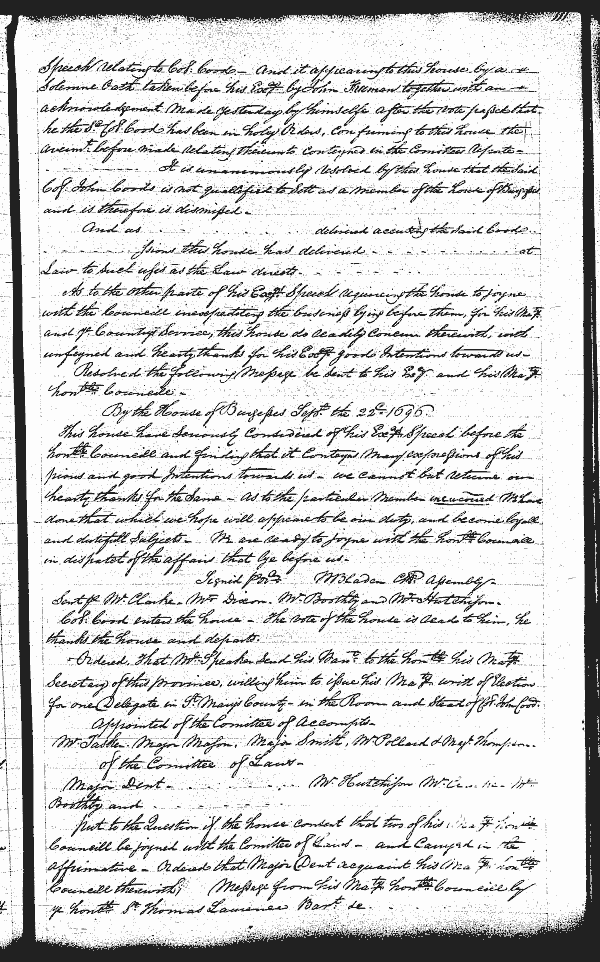 Speech relating to Col. Coode – And it appearing to this house by a
Solemne Oath taken before his Exc.y by John Freeman together with an
acknowledgement made yesterday by himselfe after the vote passed that
he the S.d Col. Cood has been in holy Orders, Confirming to this house the
averm.t before made relating thereunto conteyned in the Comittee Reporte –
It is unanimously resolved by this house that the said
Col. John Coode is not quallified to Sitt as a member of the house of Burgesses
and is therefore is dismissed –
And as delivered the said Coode
this house has delivered at
Law to such uses as the Law directs.
As to the other parte of his Exc.y Speech requireing the house to joyne
with the Councill in expediting the business lying before them, for his Ma.ty
and y.e Countrys Service, this house do readily Concur therewith, with
unfeyned and hearty thanks for his Exc.y good Intentions towards us –
Resolved the following Message be sent to his Exc.y and his Ma.ty
hon.ble Councill –
By the House of Burgesses Sept.r the 22.d 1696
This house have seriously Considered of his Exc.y Speech before the
hon.ble Councill and finding that it Conteyns Many expressions of his
pious and good Intentions towards us – we cannot but returne our
hearty thanks for the Same – as to the particular Member We have
done that which we hope will appeare to be our duty, and become loyall
and dutifull Subjects – We are ready to joyne with the hon.ble Councill
in dispatch of the affairs that lye before us –
Signed W Bladen Assembly
Sent p.r M.r Clarke. M.r Dixon. M.r Boothby and M.r Hutchison.
Col. Cood enters the house – the vote of the house is read to him, he
thanks the house and departs.
Ordered, That M.r Speaker send his to the hon.ble his Ma.ty
Secretary of this province, willing him to issue his Ma.ty writt of Election
for one Delegate in S.t Marys County – in the Room and Stead of Col. John Cood
Appointed of the Comittee of Accompts –
M.r Tasker. Major Mason, Major Smith, M.r Pollard & Maj.r Thompson –
of the Comittee of Laws –
Major Dent – M.r Hutchison M.r
Boothby and
put to the Question if the house consent that two of his Ma.ty hon.ble
Councill be joyned with the Comittee of Laws – and Carryed in the
affirmative – Ordered that Major Dent acquaint his Ma.ty hon.ble
Councill therewith; Message from his Ma.ty hon.ble Councill by
y.e hon.ble S.r Thomas Laurence Bar.t